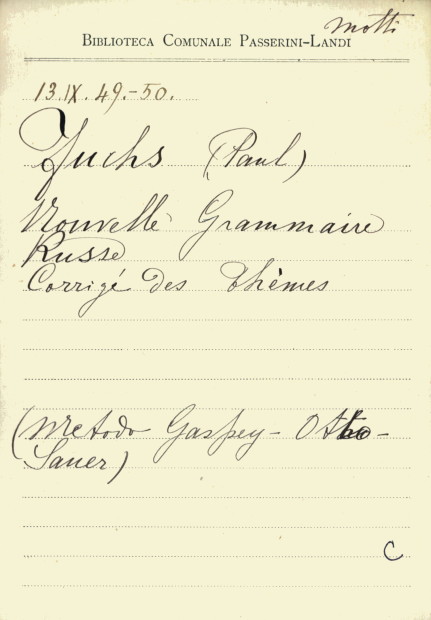 Motti
BIBLIOTECA COMUNALE PASSERINI-LANDI
13.IX.49.-50.
Fuchs (Paul)
Nouvelle Grammaire
Russe
Corrigé des thèmes
(Metodo Gaspey - Otto -
Sauer)
C